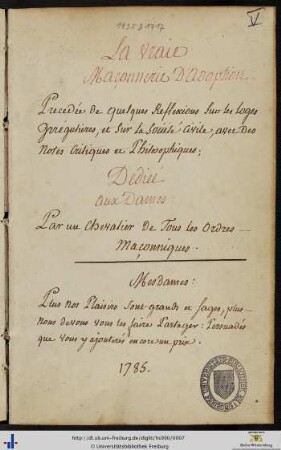 V
La Vraie
Maçonnerie D'adoption.
Precedée de quelques Reflexions Sur les loges
Irrégulieres, et Sur la Société Civile, avec Des
Notes Critiques et Philosophiques;
Dédiée
aux Dames:
Par un Chevalier de Tous les Ordres
Maçonniques.
Mesdames:
Plus nos Plaisirs Sont grands et Sages, plus
nous devons vous les faires Partager: Persuadés
que vous y ajouterés encore un prix.
1785.
http://dl.ub.uni-freiburg.de/diglit/hs990/0007
© Universitätsbibliothek Freiburg